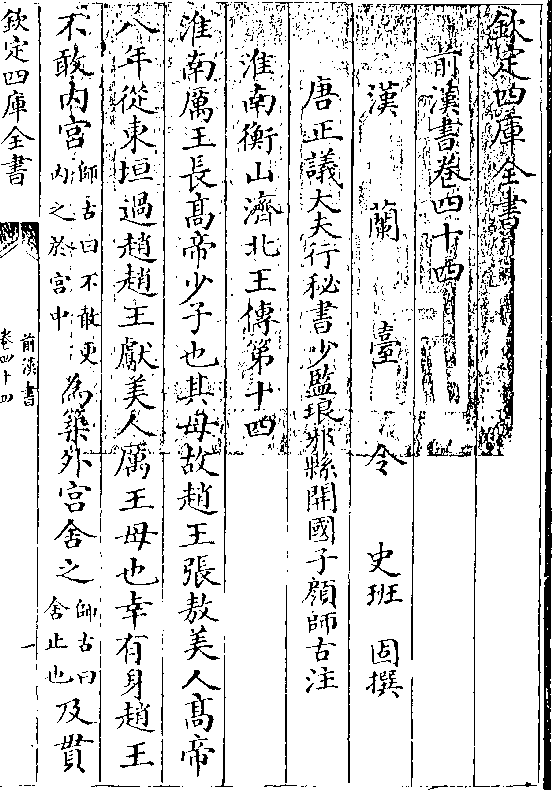 欽定四庫全書
前漢書卷四十四
漢蘭臺令史班固撰
唐正議大夫行秘書少監琅邪縣開國子顔師古注
淮南衡山濟北王傳第十四
淮南厲王長髙帝少子也其母故趙王張敖美人髙帝
八年從東垣過趙趙王獻美人厲王母也幸有身趙王
不敢内宫師古曰不敢更内之於宫中為築外宫舍之師古曰舍止也及貫
欽定四庫全書
前漢書
卷四十四
一